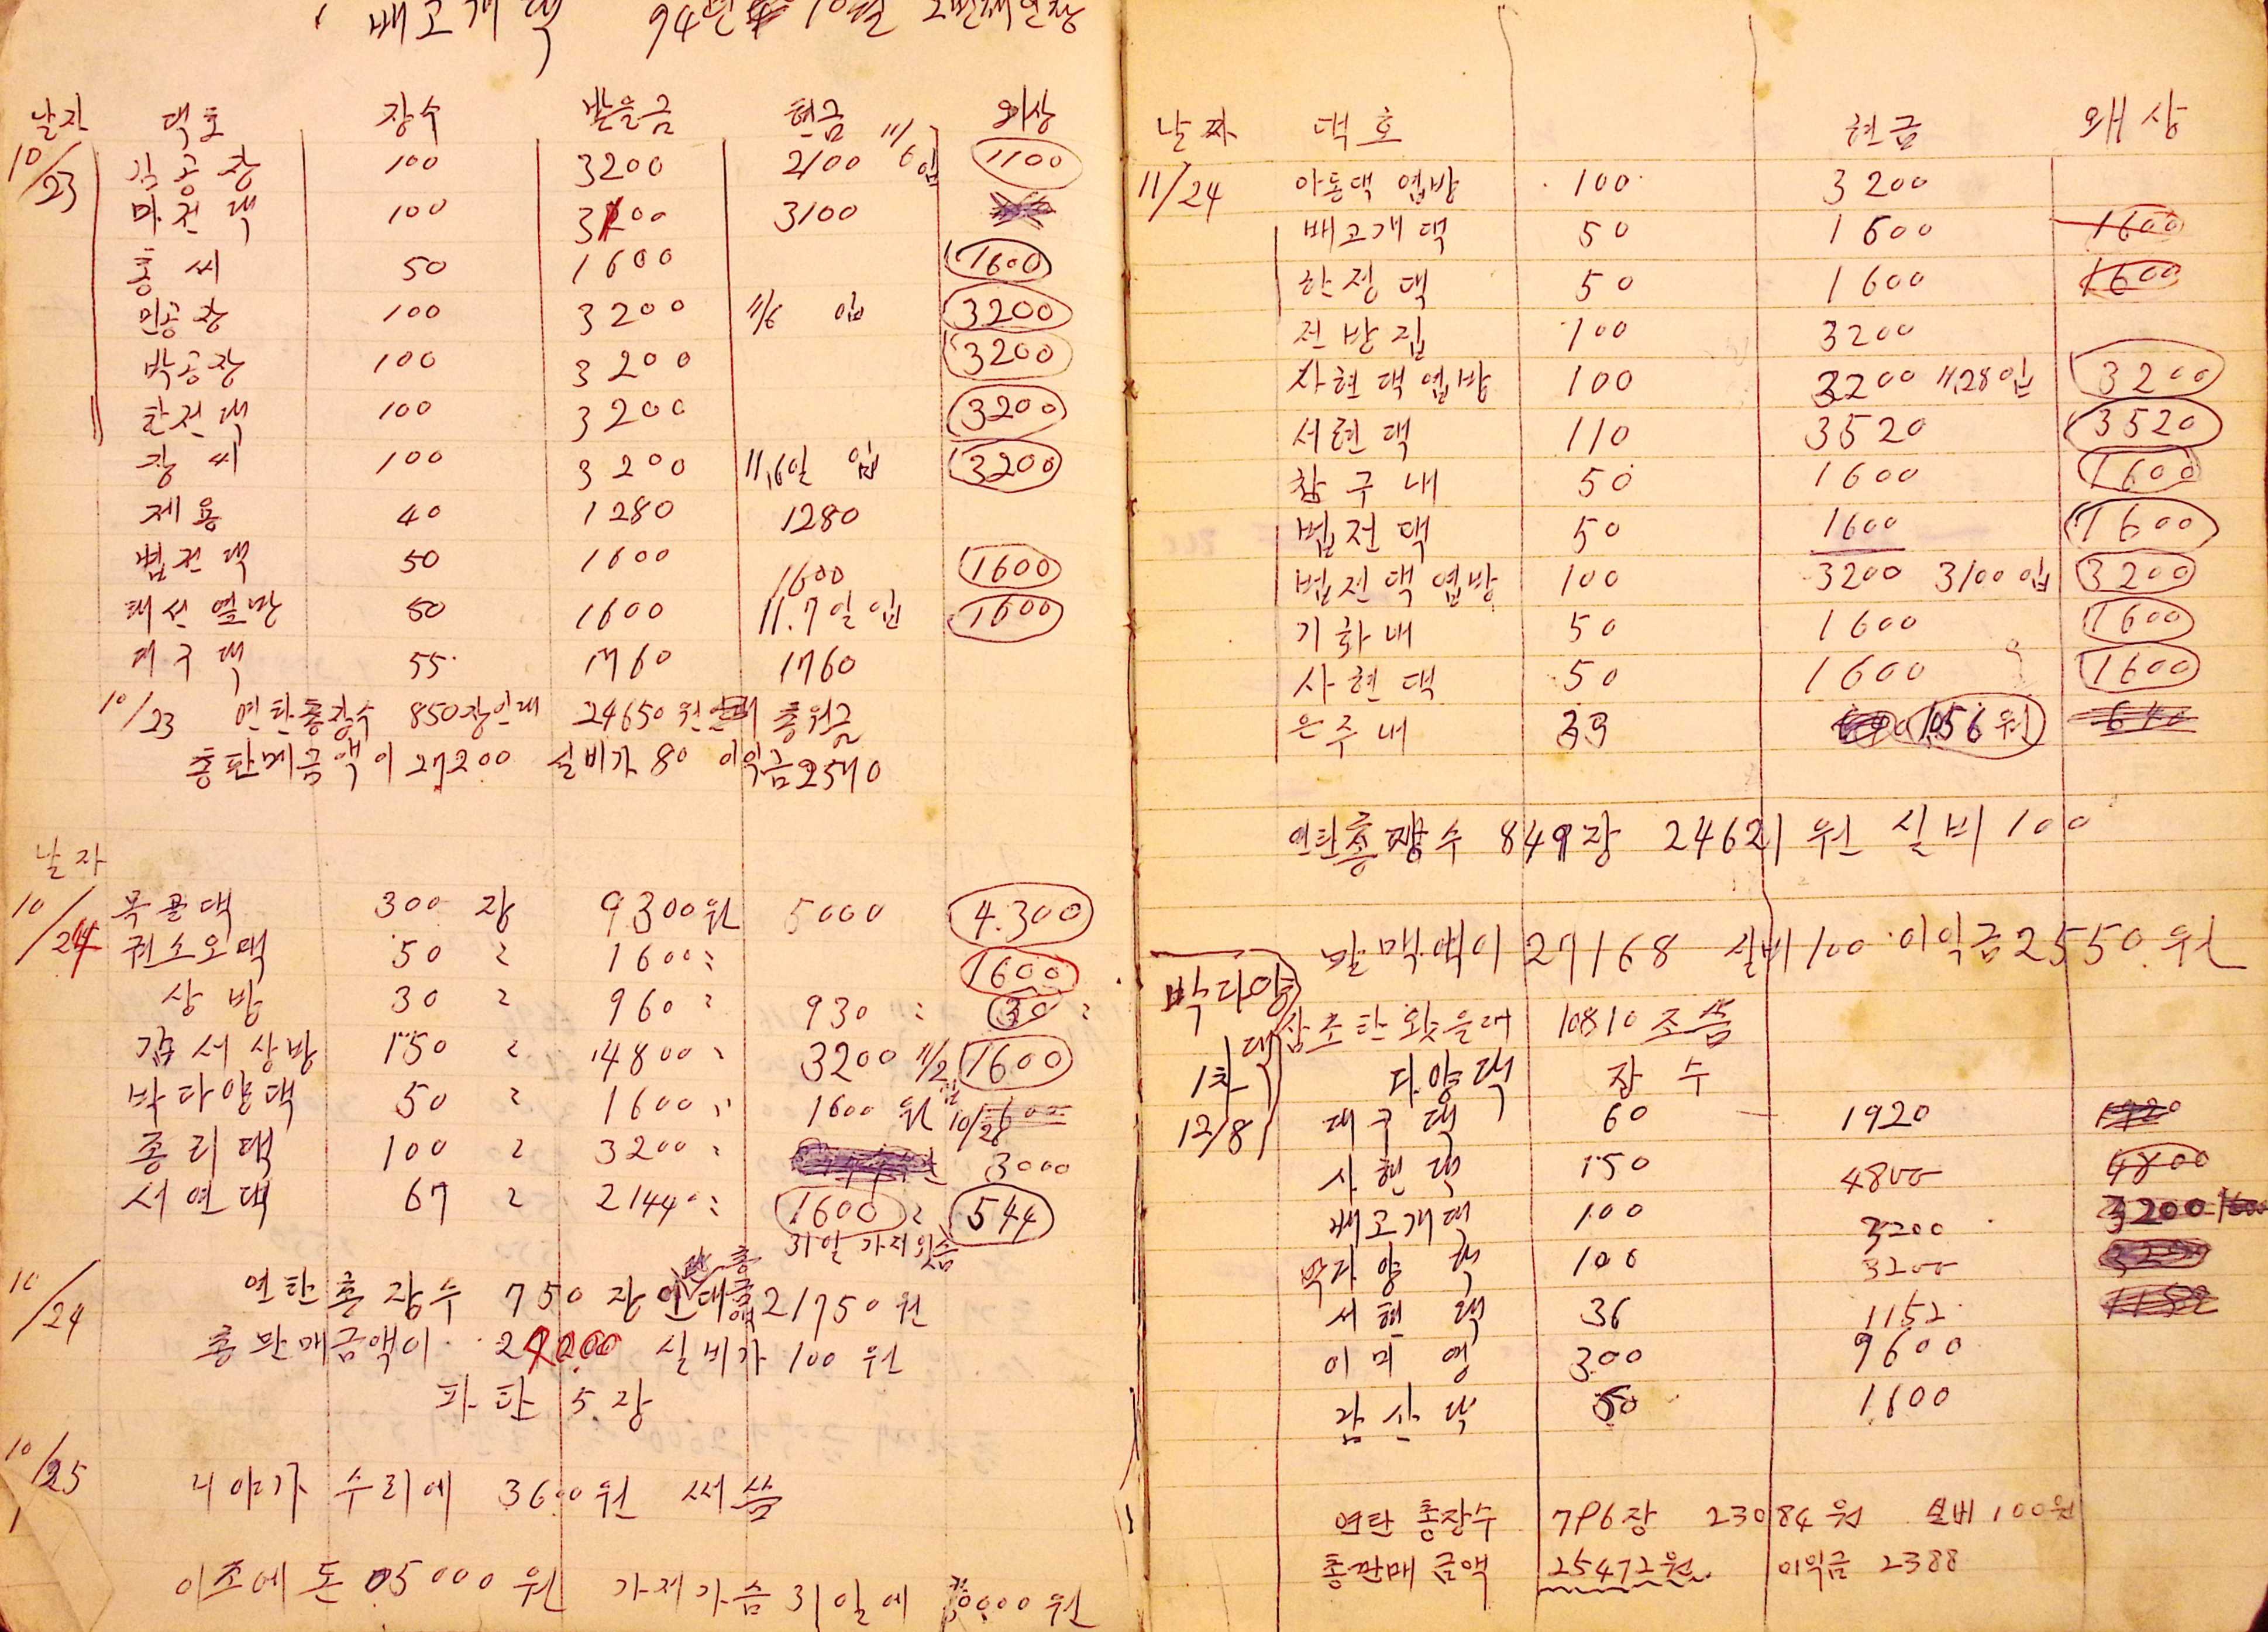 배고개댁 94년 10월 2번째 연장
날자 댁호 장수 받을금 현금 외상
10/23 김공장 100 3200 2100 11/6 입 1100
마전댁 100 3200 3100
홍씨 50 1600 1600
민공장 100 3200 11/6 입 3200
박공장 100 3200 3200
한전댁 100 3200 3200
장씨 100 3200 11,6일 입 3200
제용 40 1280 1280
법전댁 50 1600 1600 1600
50 1600 11.7일 입 1600
대구댁 55 1760 1760
10/23 연탄총장수 850장인데 24650원 총원금
총판매금액이 27200 실비가 80 이익금 2570
날자
10/24 목골댁 300 장 9300원 5000 4.300
50 〃 1600〃 1600
상방 30 〃 960〃 930〃 30〃
김서상방 150 〃 4800〃 3200 11/2 입 1600
박다양댁 50 〃 1600〃 1600원 10/28
종리댁 100 〃 3200〃 3000
서연댁 67 〃 2144〃 1600〃 544
31일 가저왓슴
10/24 연탄총장수 750장 21750원
총판매금액이 24200 실비가 100원
파탄 5장
10/25 니야가 수리에 3600원 써씀
이조에 돈 5000원 가저가슴 31일에 원
날짜 댁호 현금 왜상
11/24 아동댁 옆방 100 3200
배고개댁 50 1600 1600
한정댁 50 1600 1600
전방집 100 3200
사현댁옆방 100 3200 11,28입 3200
서현댁 110 3520 3520
참구내 50 1600 1600
법전댁 50 1600 1600
법전댁 옆방 100 3200 3100입 3200
기화내 50 1600 1600
사현댁 50 1600 1600
은주내 33 1056원 640
연탄총장수 849장 24621원 실비 100
판맥액이 27168 실비100 이익금 2550원
박다양댁 삼조탄왓을대 10810 조씀
1차 다양댁 장수
12/8 대구댁 60 1920 1920
사현댁 150 4800 4800
배고개댁 100 3200 3200
박다양댁 100 3200
서현댁 36 1152 1152
이미영 300 9600
감산댁 50 1600
연탄 총장수 796장 23084원 실비 100원
총판매 금액 25472원 이익금 2388